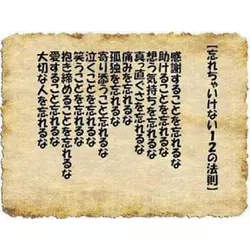 [忘れちゃいけない12の法則]
感謝することを忘れるな
助けることを忘れるな
想う気持ちを忘れるな
真っ直ぐを忘れるな
痛みを忘れるな
孤独を忘れるな
寄り添うことを忘れるな
泣くことを忘れるな
笑うことを忘れるな
抱き締めることを忘れるな
愛することを忘れるな
大切な人を忘れるな